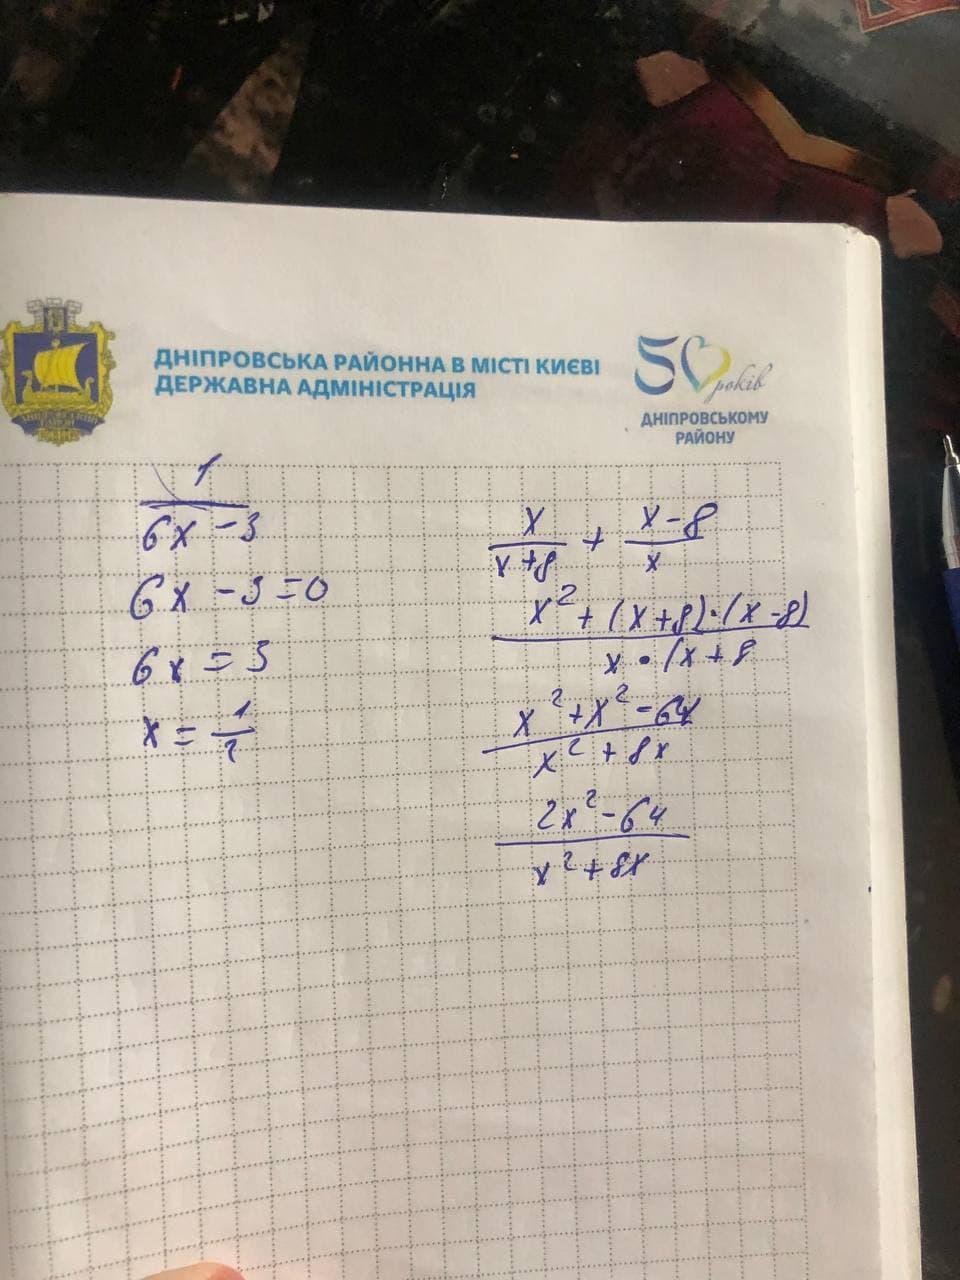 ДНІПРОВСЬКА РАЙОННА В МІСТІ КИЄВІ
ДЕРЖАВНА АДМІНІСТРАЦІЯ
50 років
ДНІПРОВСЬКОМУ
РАЙОНУ
1
6x - 3
6x - 3 = 0
6x = 3
x = 1/2
x/(x+8) + (x-8)/x
x² + (x+8)·(x-8)
x · (x + 8
x² + x² - 64
x² + 8x
2x² - 64
x² + 8x